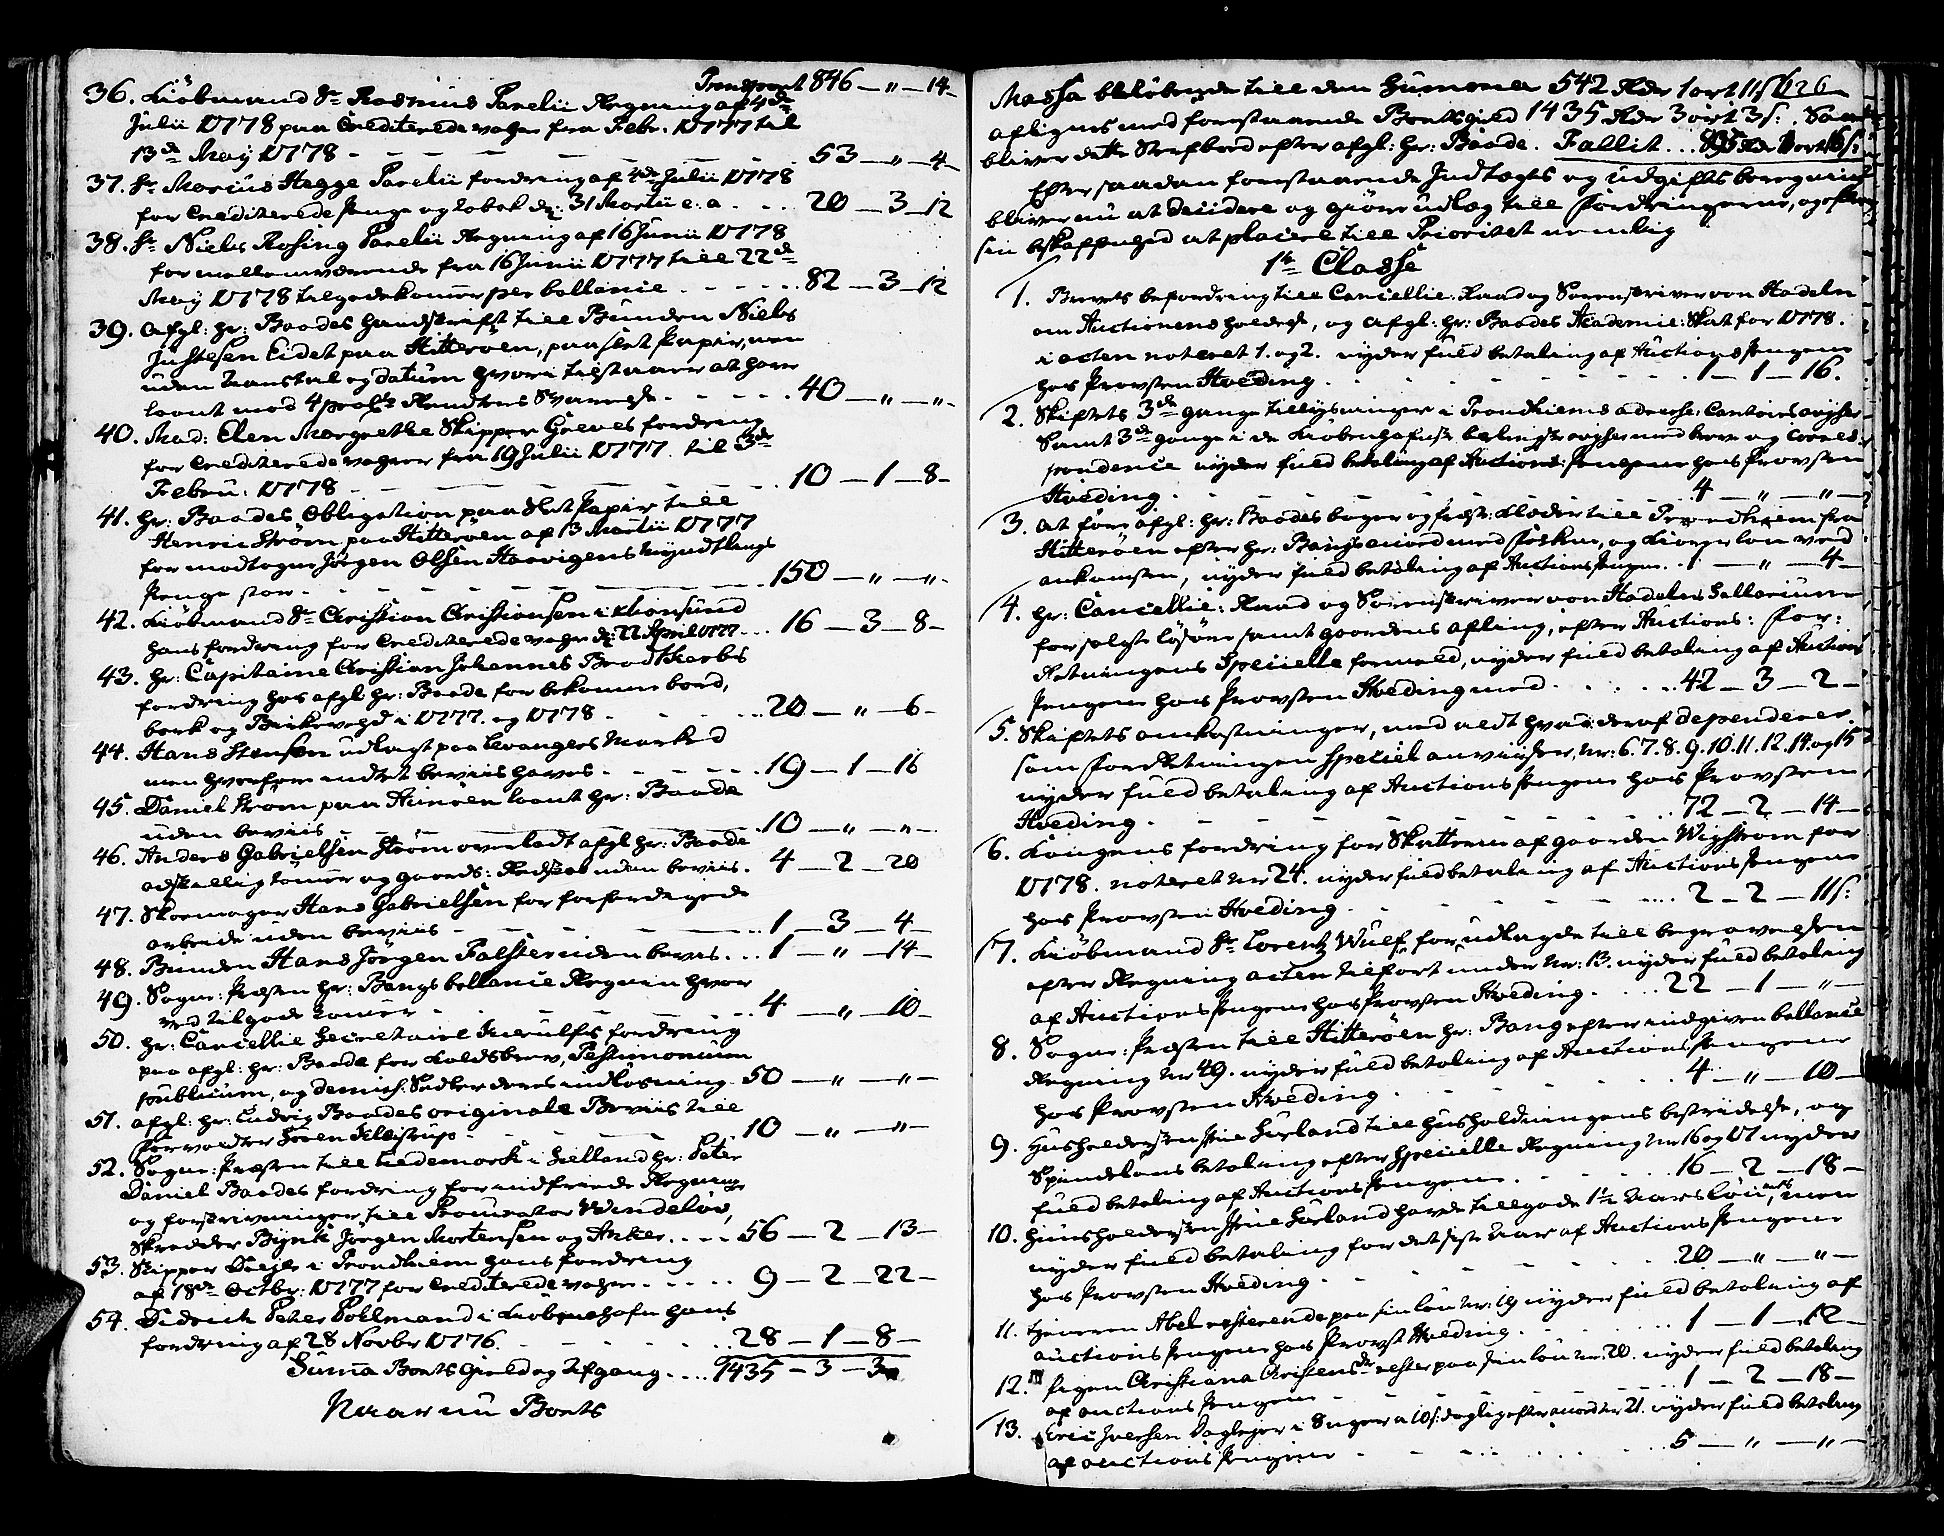 Transport 846 — " — 14 —
36. Kiöbmand Sr Rasmus Parelii Regning af 4de
Julii 1778 paa Crediterede vahre fra Febr. 1777 til
13de Maÿ 1778 - - - - - 53 — " — 4 —
37. Sr Marcus Hegge Parelii fordring af 4de Julii 1778
for Crediterede Penge og Tobak d: 31 Martii e: a . . . 20 — 3 — 12
38. Sr Niels Rosing Parelii Regning af 16 Junii 1778
for mellemværende fra 16 Junii 1777 till 22de
Maÿ 1778 tilgodekomer per ballance . . . . . 82 — 3 — 12
39. Afgl: Hr: Baades handskrift till Bunden Niels
Justesen Eidet paa Hitteröen, paa slet Papir, men
uden Aarstal og datum hvori tilstaaer at have
laant mod 4 proCto Rendters Svarelse . . . . . 40 — " — " —
40. Mad: Elen Margrethe Skipper Greves fordring
for Crediterede vahrer fra 19 Julii 1777 til 3de
Febru: 1778 - - - - - 10 — 1 — 8 —
41. Hr: Baades Obligation paa slet Papir till
Henric Ström paa Hitteröen af 13 Martii 1777
for modtagne Jörgen Olsen Havigens Myndtlings
Penge stor - - - - - 150 — " — " —
42. Kiöbmand Sr Christian Christiansen i Christiansund
hans fordring for Crediterede vahre d: 22 April 1777 . . . 16 — 3 — 8 —
43. Hr: Capitaine Christian Johannes Brodtkorbs
fordring hos afgl Hr: Baade for bekomne bord,
bark og Birkevehd i 1777. og 1778 - - - 20 — " — 6 —
44. Hans Stensen udlagt paa Levangers Marked
men hvorfore indtet beviis haves . . . . . 19 — 1 — 16
45. Daniel Ström paa Hitröen laant Hr: Baade
uden beviis - - - - - 10 — " — " —
46. Anders Gabrielsen Ström overladt afgl Hr: Baade
adskellig tömer og gaards: Redskab uden beviis . 4 — 2 — 20
47. Skoemager Hans Gabrielsen for forfærdigede
arbeide uden beviis - - - - - 1 — 3 — 4 —
48. Bunden Hans Jörgen Falster uden bevis . . . 1 — " — 14 —
49. Sogne: Præsten Hr: Bangs ballance Regnin hvor
ved tilgode komer - - - - 4 — " — 10 —
50. Hr: Cancellie Secretaire Kierulfs fordring
paa afgl: Hr: Baade for Kaldsbrev, Testimonium
publicum, og demiss: Sedler deres indlösning . 50 — " — " —
51. afgl: Hr: Ludvig Baades originale Beviis till
Forvalter Sören Kleistrup - - - - 10 — " — " —
52. Sogne: Præsten till Ledemark i Sælland Hr: Peter
Daniel Baades fordring for indfriede Regning
og forskrivninger till Procurator Windelöv,
Skredder Bynk Jörgen Mortensen og Anker . . . . 56 — 2 — 13 —
53. Skipper Døsse i Trondhiem hans fordring
af 18de Octbr: 1777 for Crediterede vahre . . . . . 9 — 2 — 22 —
54. Didrich Peter Pollmand i Kiöbenhafn hans
fordring af 28 Novbr 1776. - - - - 28 — 1 — 8 —
Suma Boets Gield og Afgang . . . . 1435 — 3 — 3
Naar nu Boets
626
Massa belöbende till den Summa 542 Rdr 1 ort 11 s
aflignes med forestaaende Boets gield 1435 Rdr 3 ort 3 s: . Saa
bliver dette Sterfboed efter afgl: Hr: Baade. Fallit . . . 893 Rdr 1 ort 16 s:
Efter saadan forestaaende Indtægts og udgifts beregning
bliver nu at decidere og giöre udlæg till Fordringerne, og efter
sin beskaffenhed at placere till Prioritet nemlig
1te Classe
1. Brevets befordring till Cancellie: Raad og Sorenskriver von Hadeln
om Auctionens holdelse, og afgl: Hr: Baades Academie: Skat for 1778.
i acten noteret 1. og 2. nyder fuld betaling af Auctions Pengene
hos Provsten Hveding . - - - - 1 — 1 — 16.
2. Skiftets 3de gange tillysninger i Trondhiems adresse: Contoirs aviser
Samt 3de gange i de Kiöbenhafnske berlingske aviser med breve og corres-
pondence nyder fuld betaling af Auctions: Pengene hos Provsten
Hveding . - - - - 4 — " — " —
3. At före afgl: Hr: Baades böger og Præste: Klæder till Trondhiem fra
Hitteröen efter Hr: Bangs accord med Förken, og Kiörsel lön ved
ankomsten, nyder fuld betaling af Auctions Pengene . . 1 — " — 4 —
4. Hr: Cancellie: Raad og Sorenskriver von Hadelns Sallarium
for solgte lösöre samt gaardens afling, efter Auctions: For:
Retningens Specielle formeld, nyder fuld betaling af Auctions
Pengene hos Provsten Hveding med . . . . . 42 — 3 — 2 —
5. Skiftets omkostninger, med aldt hvad deraf dependerer
som Forretningen Speciel anviiser, Nr: 6. 7. 8. 9. 10. 11. 12. 14. og 15
nyder fuld betaling af Auctions Pengene hos Provsten
Hveding . - - - - 72 — 2 — 14 —
6. Kongens fordring for Skatterne af gaarden Wigström for
1778. noteret Nr 24. nyder fuld betaling af Auctions Pengene
hos Provsten Hveding . - - - . . . . 2 — 2 — 11 s:
7. Kiöbmand Sr Lorentz Wulf for udlagde till begravelsen
efter Regning acten tilfört under Nr: 13. nyder fuld betaling
af Auctions Pengene hos Provsten Hveding . . . . . 22 — 1 — " —
8. Sogne: Præsten till Hitteröen Hr: Bang efter indgiven ballance
Regning Nr 49. nyder fuld betaling af Auctions Pengene
hos Provsten Hveding . - - - - 4 — " — 10 —
9. Huusholdersken Stine Sørland till Huusholdningens bestridelse, og
betaling efter Specielle Regning Nr 16 og 17 nyder
fuld betaling af Auctions Pengene . - - - 16 — 2 — 18 —
10. Huusholdersken Stine Sørland havde tillgode 1½ Aars lön, men
nyder fuld betaling for det siste Aar af Auctions Pengene
hos Provsten Hveding . - - - - 20 — " — " —
11. Tieneren Abel resterende paa sin lön Nr: 19 nyder fuld betaling af
auctions Pengene hos Provst Hveding . - - - 1 — 1 — 12 —
12. Pigen Christiana Christensdr rester paa sin lön Nr. 20. nyder fuld betaling
af auctions Pengene - - - - 1 — 2 — 18 —
13. Eric Iversen Daglejer i Suger a 10 s: daglig efter accord Nr 21. nyder fuld betaling
af auctions Pengene - - - - 5 — " — " —